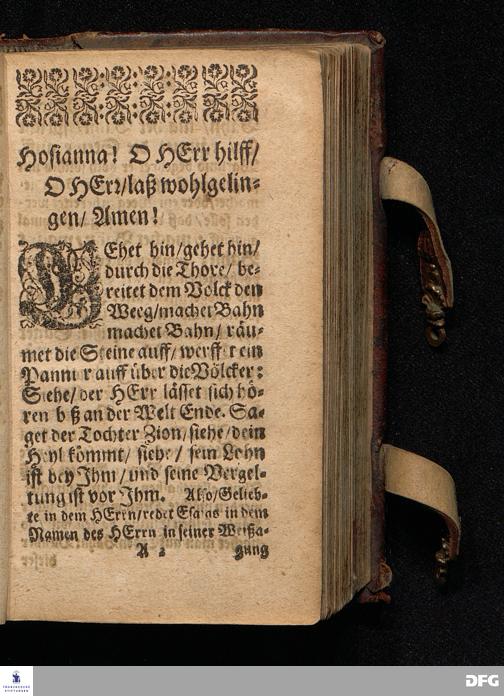 Hosianna! O HErr hilff/
O HErr/laß wohlgelin-
gen/ Amen!
GEhet hin/gehet hin/
durch die Thore/ be-
reitet dem Volck den
Weeg/machet Bahn
machet Bahn/ räu-
met die Steine auff/ werffet ein
Pannier auff über die Völcker:
Siehe/der HErr lässet sich hö-
ren biß an der Welt Ende. Sa-
get der Tochter Zion/siehe/dein
Heyl kömmt/ siehe/ sein Lohn
ist bey Ihm/und seine Vergel-
tung ist vor Ihm. Also/Gelieb-
te in dem HErrn/redet Esaias in dem
Namen des HErrn in seiner Weißa-
A 2 gung
FRANCKESCHE
STIFTUNGEN
DFG